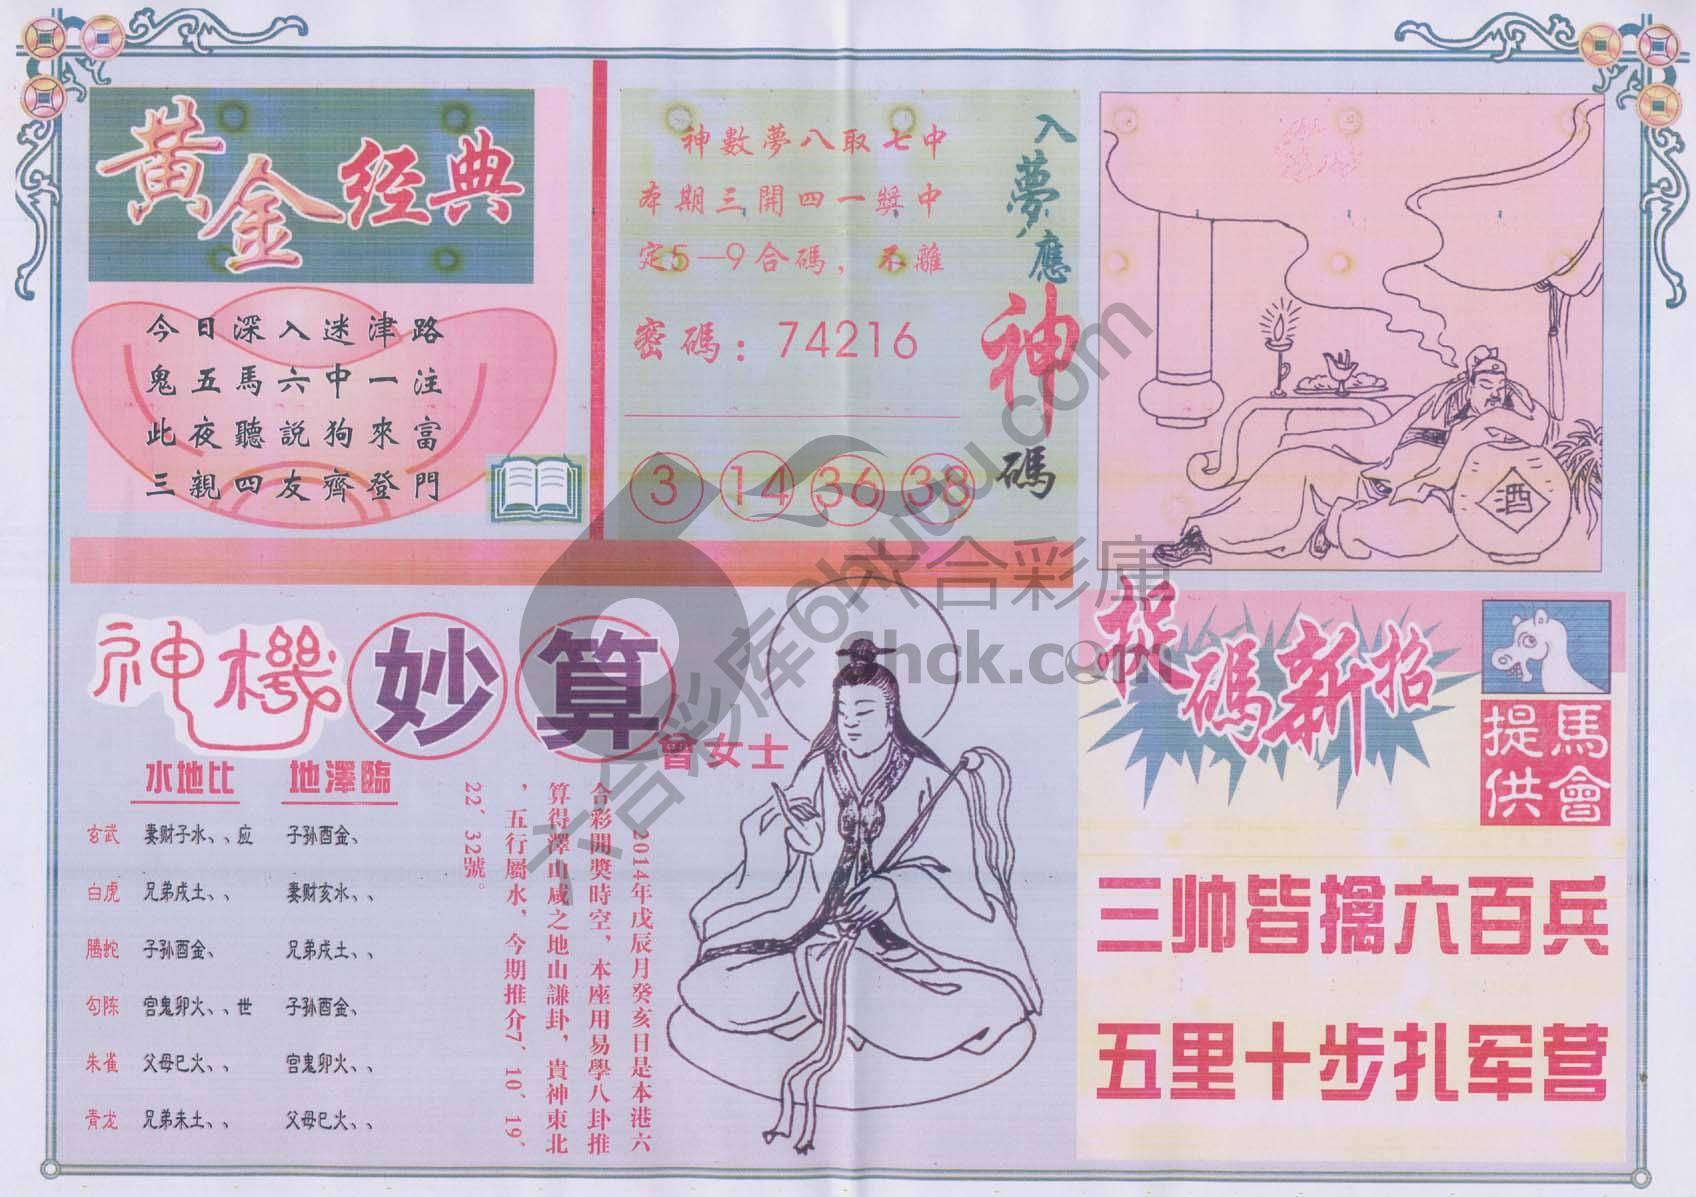 黄金经典
今日深入迷津路
鬼五馬六中一注
此夜聽説狗來富
三親四友齊登門
神數夢八取七中
本期三開四一獎中
定5—9合碼，不離
密碼：74216
3 14 36 38
入夢應神碼
酒
神機妙算
曾女士
水地比 地澤臨
玄武 妻财子水、、应 子孙酉金、
白虎 兄弟戌土、、 妻财亥水、、
腾蛇 子孙酉金、 兄弟戌土、、
勾陈 宫鬼卯火、、世 子孙酉金、
朱雀 父母巳火、、 宫鬼卯火、、
青龙 兄弟未土、、 父母巳火、、
2014年戊辰月癸亥日是本港六
合彩開獎時空，本座用易學八卦推
算得澤山咸之地山謙卦，貴神東北
，五行屬水，今期推介7、10、19、
22、32號。
捉碼新招
馬會
提供
三帅皆擒六百兵
五里十步扎军营
六合彩庫
6hck.com
六合彩库6hkuu.com